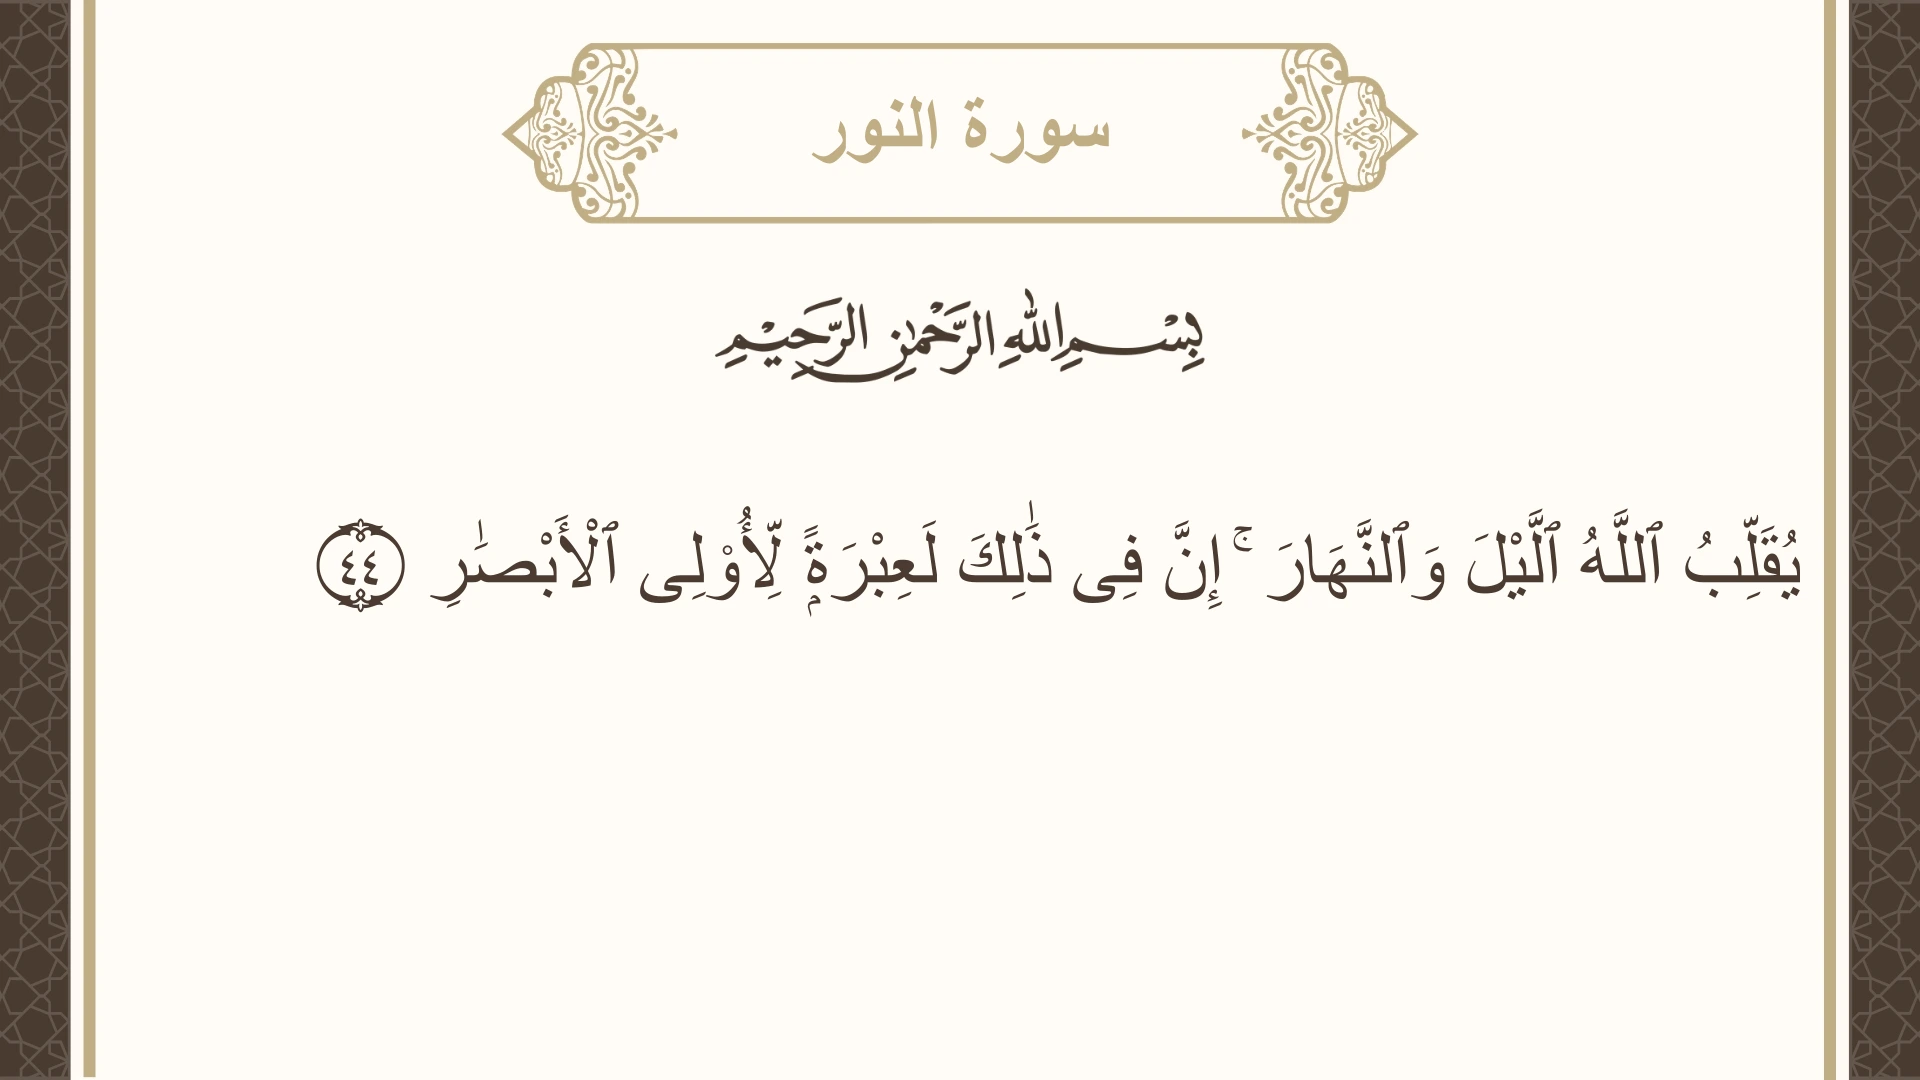 سورة النور
بِسْمِ اللهِ الرَّحْمٰنِ الرَّحِيْمِ
يُقَلِّبُ ٱللَّهُ ٱلَّيْلَ وَٱلنَّهَارَ ۚ إِنَّ فِى ذَٰلِكَ لَعِبْرَةًۭ لِّأُو۟لِى ٱلْأَبْصَٰرِ ٤٤